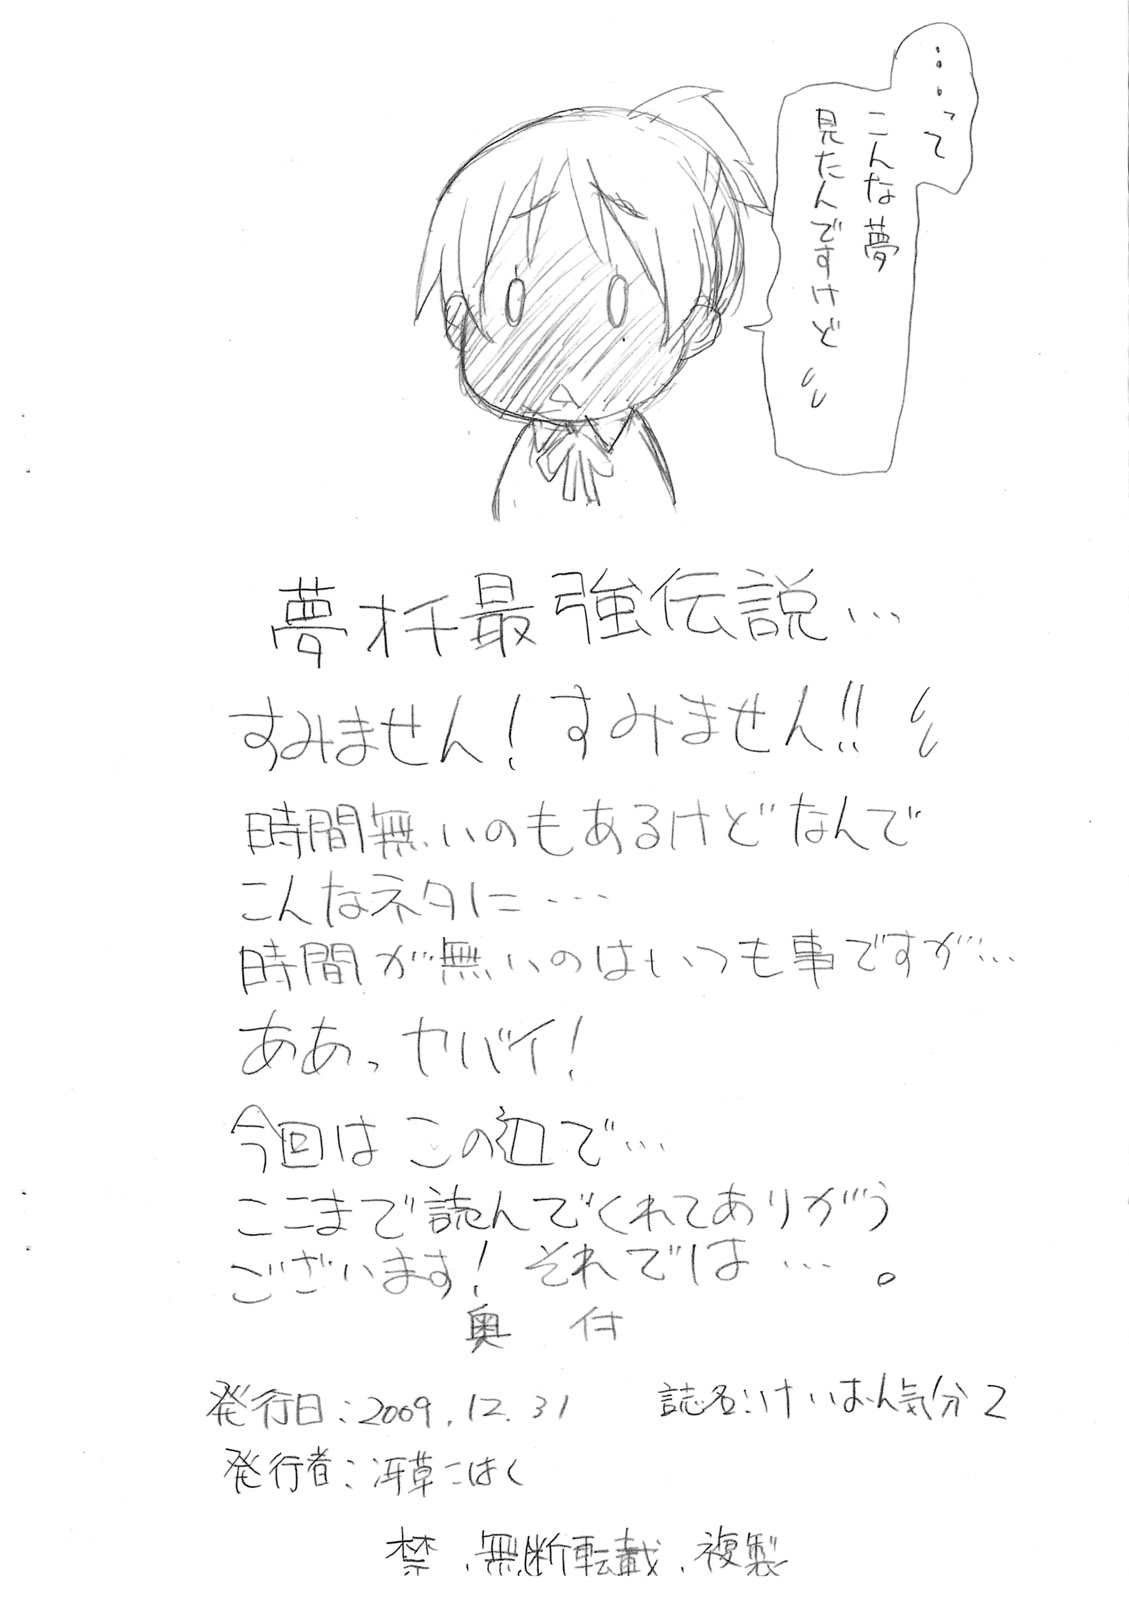 …って
こんな夢
見たんですけど
夢オチ最強伝説…
すみません!すみません!!
時間無いのもあるけどなんで
こんなネタに…
時間が無いのはいつも事ですが…
ああっヤバイ!
今回はこの辺で…
ここまで読んでくれてありがう
ございます!それでは…。
奥付
発行日:2009.12.31
誌名:けいおん気分2
発行者:冴草こはく
禁、無断転載、複製